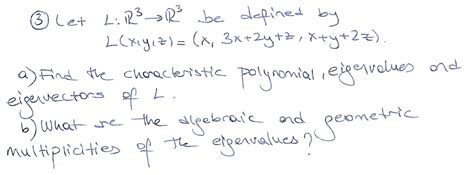 ③ Let L: ℝ³ → ℝ³ be defined by
L(x,y,z) = (x, 3x+2y+z, x+y+2z).
a) Find the characteristic polynomial, eigenvalues and
eigenvectors of L.
b) What are the algebraic and geometric
multiplicities of the eigenvalues?